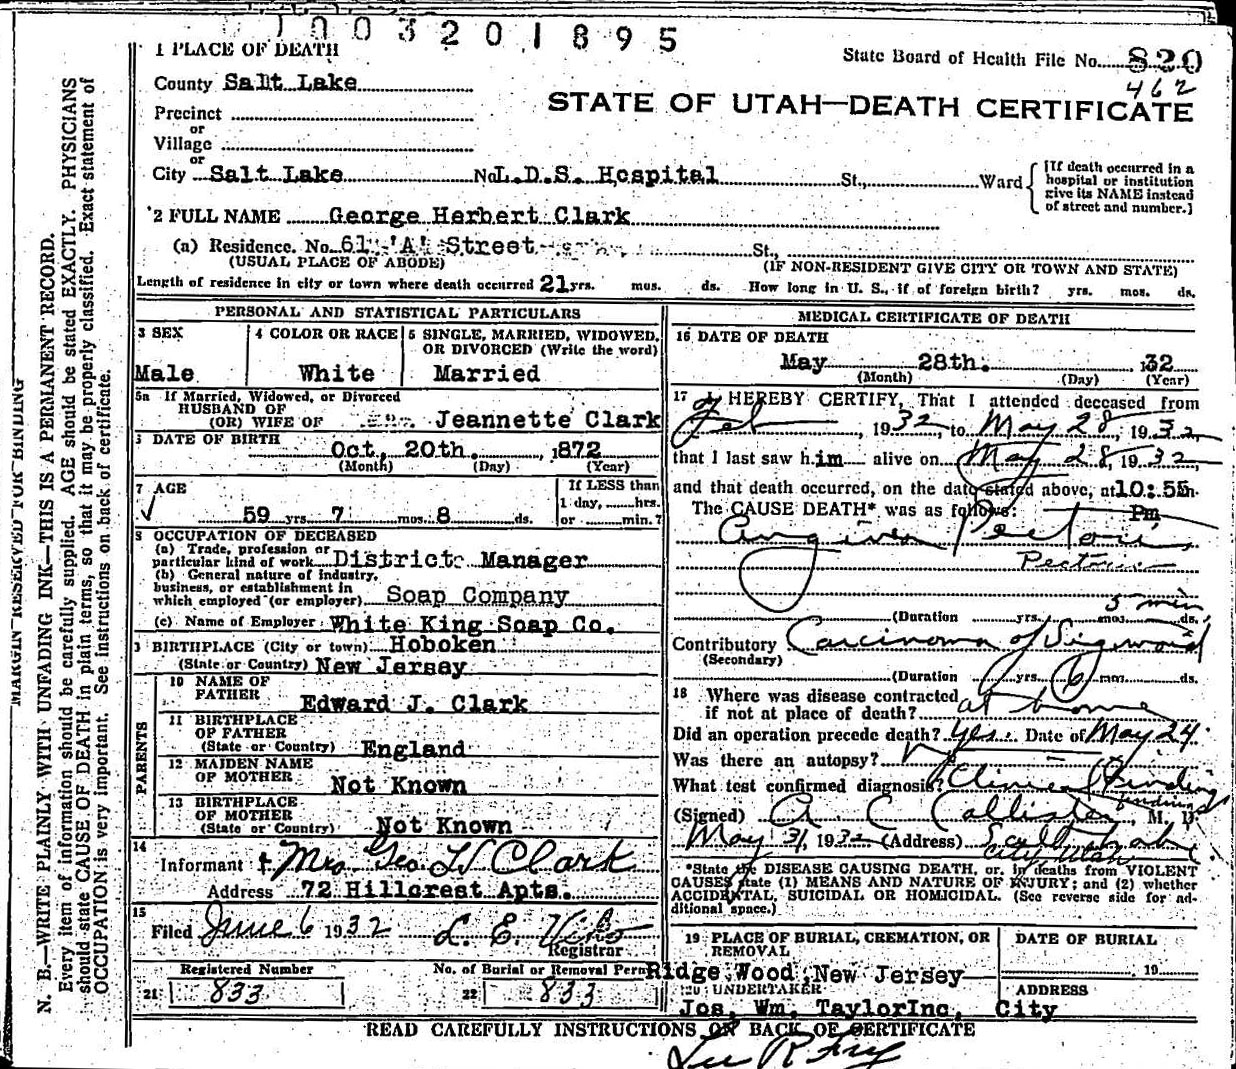 1003201895
1 PLACE OF DEATH
State Board of Health File No. 820
462
County Salt Lake
STATE OF UTAH—DEATH CERTIFICATE
Precinct
or
Village
or
City Salt Lake No. L.D.S. Hospital St., Ward
[If death occurred in a hospital or institution give its NAME instead of street and number.]
2 FULL NAME George Herbert Clark
(a) Residence. No. 61 'A' Street St.,
(USUAL PLACE OF ABODE) (IF NON-RESIDENT GIVE CITY OR TOWN AND STATE)
Length of residence in city or town where death occurred 21 yrs. mos. ds. How long in U. S., if of foreign birth? yrs. mos. ds.
PERSONAL AND STATISTICAL PARTICULARS
3 SEX
Male
4 COLOR OR RACE
White
5 SINGLE, MARRIED, WIDOWED, OR DIVORCED (Write the word)
Married
5a If Married, Widowed, or Divorced
HUSBAND OF
(OR) WIFE OF Jeannette Clark
6 DATE OF BIRTH
Oct. 20th. 1872
(Month) (Day) (Year)
7 AGE
59 yrs. 7 mos. 8 ds.
If LESS than
1 day, hrs.
or min.?
8 OCCUPATION OF DECEASED
(a) Trade, profession or
particular kind of work District Manager
(b) General nature of industry,
business, or establishment in
which employed (or employer) Soap Company
(c) Name of Employer White King Soap Co.
9 BIRTHPLACE (City or town) Hoboken
(State or Country) New Jersey
PARENTS
10 NAME OF
FATHER Edward J. Clark
11 BIRTHPLACE
OF FATHER
(State or Country) England
12 MAIDEN NAME
OF MOTHER Not Known
13 BIRTHPLACE
OF MOTHER
(State or Country) Not Known
14
Informant Mrs Geo H Clark
Address 72 Hillcrest Apts.
15
Filed June 6 1932 L. E.
Registrar
Registered Number No. of Burial or Removal Perm
21 833 22 833
MEDICAL CERTIFICATE OF DEATH
16 DATE OF DEATH
May 28th. 32
(Month) (Day) (Year)
17 I HEREBY CERTIFY, That I attended deceased from
Feb, 1932, to May 28, 1932,
that I last saw him alive on May 28, 1932,
and that death occurred, on the date stated above, at 10:55 m.
The CAUSE DEATH* was as follows: Pm
Angina Pectoris
Pectoris
5 min
(Duration yrs. mos. ds.
Contributory Carcinoma of Sigmoid
(Secondary)
(Duration yrs. 6 mos. ds.
18 Where was disease contracted
if not at place of death? at home
Did an operation precede death? Yes Date of May 24
Was there an autopsy? No
What test confirmed diagnosis? Clinical Finding
findings
(Signed) A C Callister, M. D.
May 31, 1932 (Address) Salt Lake
City, Utah
*State the DISEASE CAUSING DEATH, or, in deaths from VIOLENT
CAUSES state (1) MEANS AND NATURE OF INJURY; and (2) whether
ACCIDENTAL, SUICIDAL OR HOMICIDAL. (See reverse side for ad-
ditional space.)
19 PLACE OF BURIAL, CREMATION, OR
REMOVAL
Ridge Wood, New Jersey
DATE OF BURIAL
19
20 UNDERTAKER
Jos. Wm. Taylor Inc.
ADDRESS
City
READ CAREFULLY INSTRUCTIONS ON BACK OF CERTIFICATE
Lee R Fry
MARGIN RESERVED FOR BINDING
N. B.—WRITE PLAINLY WITH UNFADING INK—THIS IS A PERMANENT RECORD.
Every item of information should be carefully supplied. AGE should be stated EXACTLY. PHYSICIANS
should state CAUSE OF DEATH in plain terms, so that it may be properly classified. Exact statement of
OCCUPATION is very important. See instructions on back of certificate.